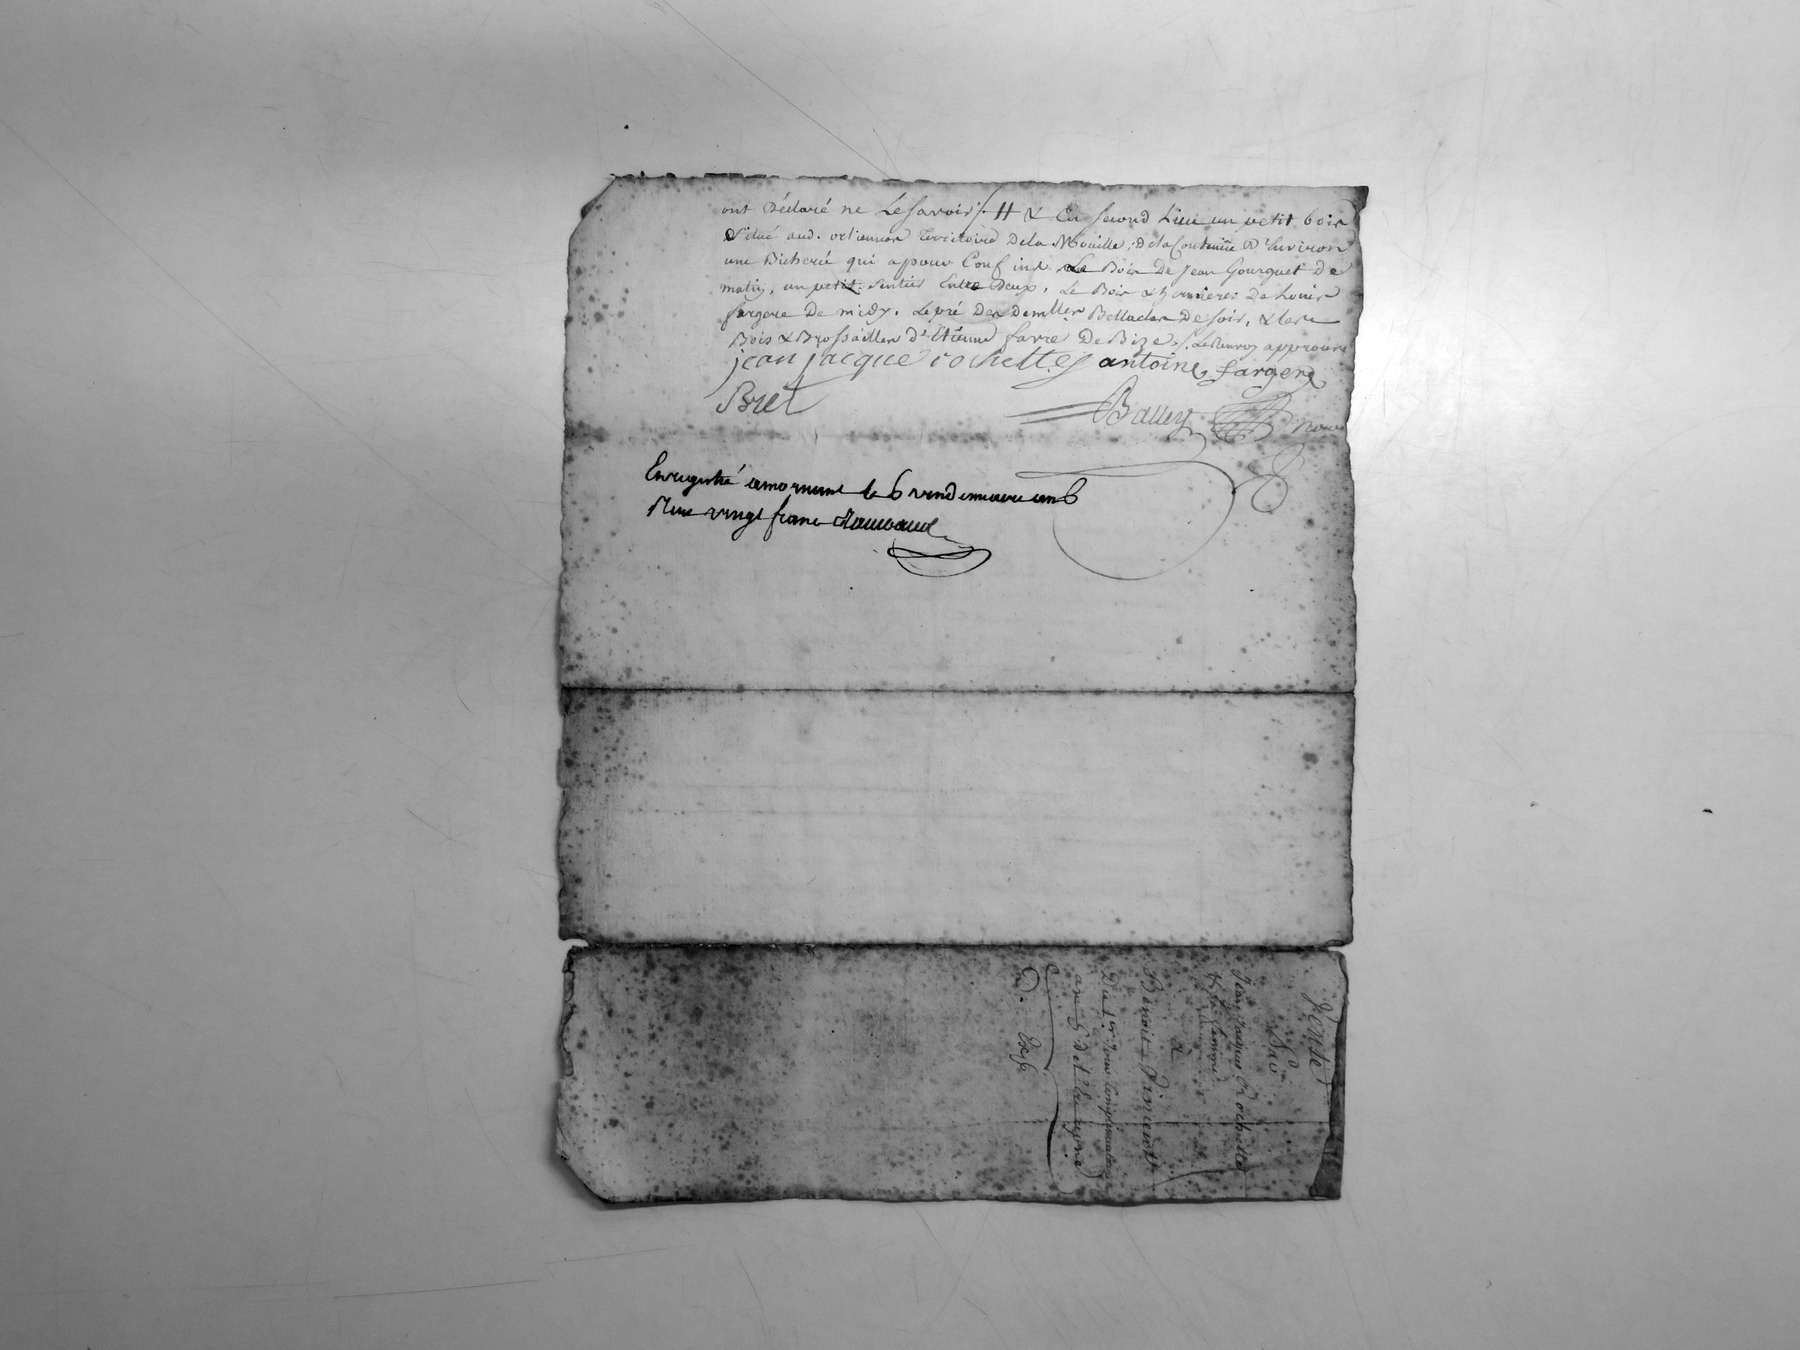 ont Déclaré ne Le savoir /. # & En second Lieu un petit bois
Situé aud. orlienas Territoire De la Mouille, De la Contenüe D'Environ
une Bicherée qui a pour Confins Le Bois De Jean Gourguet De
matin, un petit Sentier Entre Deux, Le Bois & De Louis
fargere De midy, Le pré Des Demlles Bellacla De soir, & les
Bois & Brossailles D'Etienne favre De Bize /. Le Renvoy approuvé
jean jacque rochette antoine fargere
Bret Balley
Enregistré a mornant le 6 vendemiaire an 6
Recu vingt franc
Vente
Par
Jean Jacques Rochette
& sa femme
à
Benoit
Du 1er Jour Complémentaire
an 5 De la Repne
D. Exp.